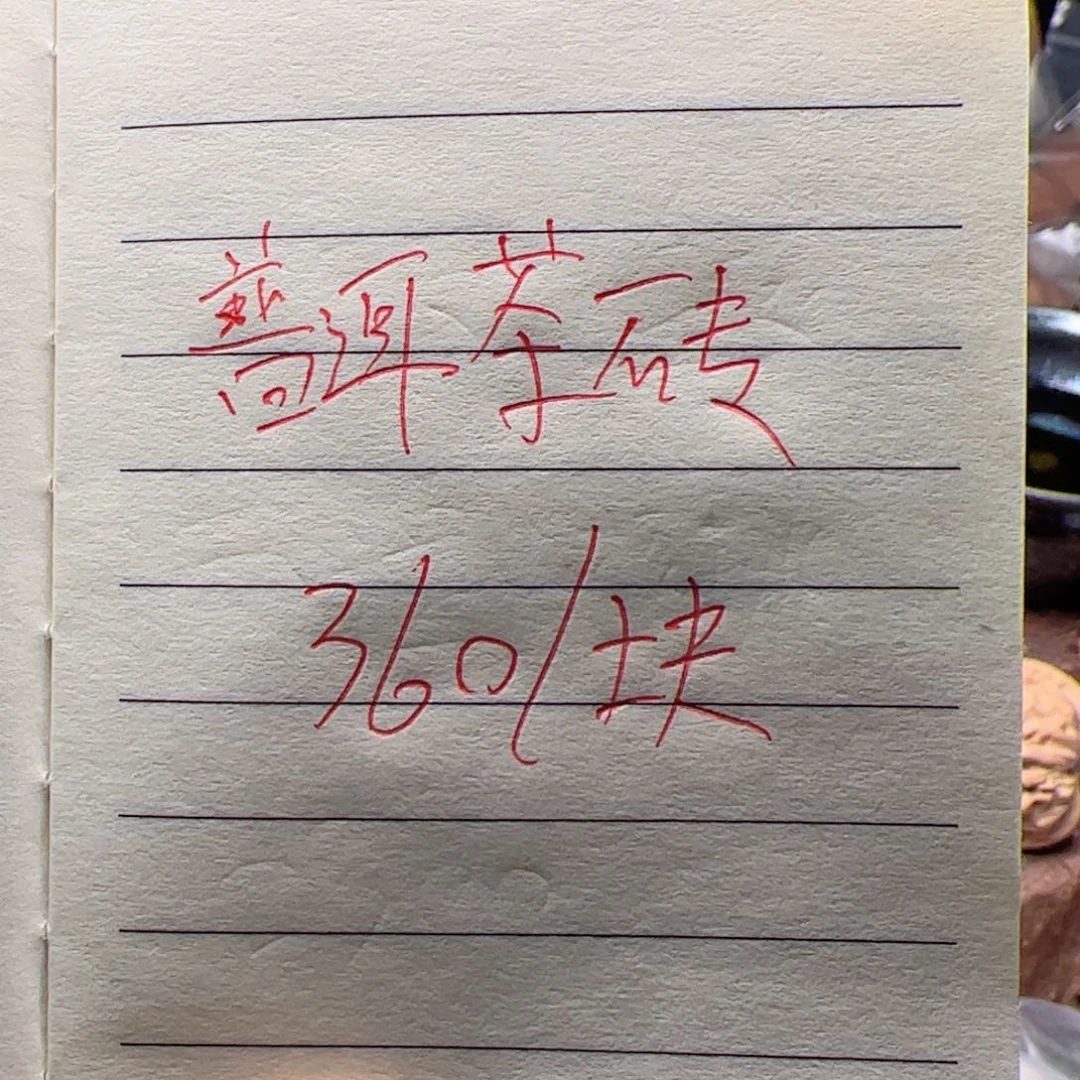 普洱茶砖
360/块